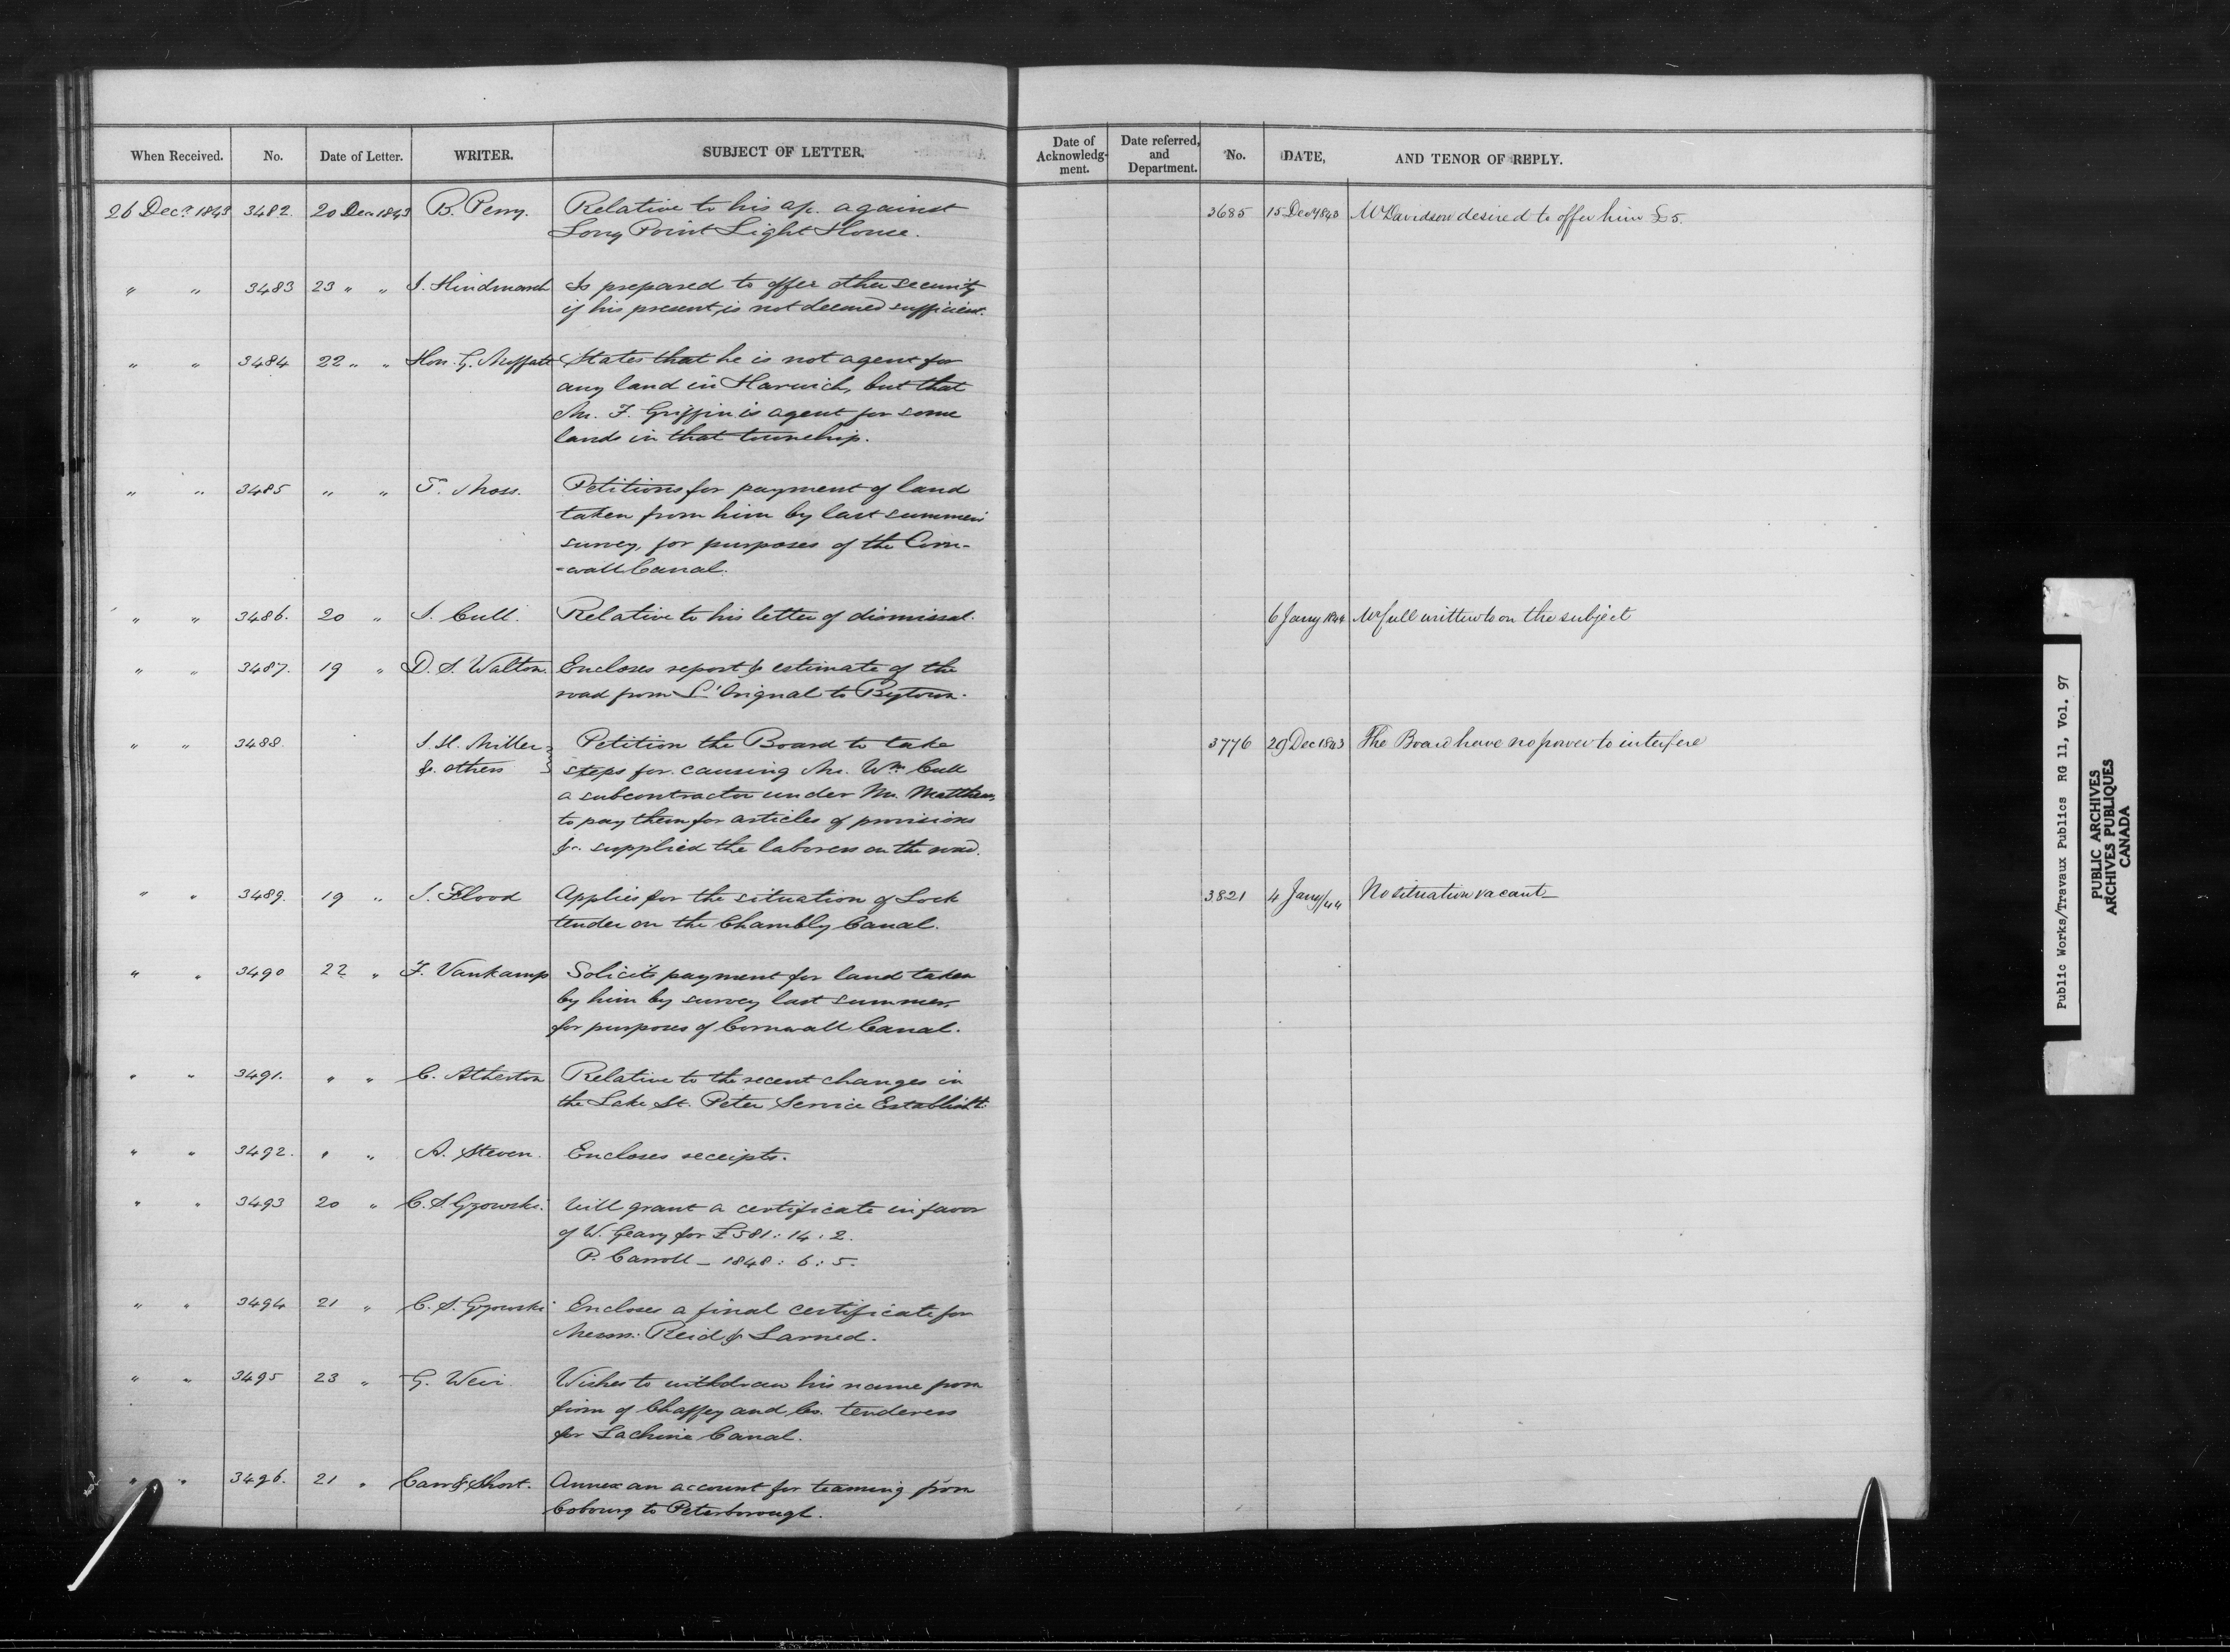 When Received. No. Date of Letter. WRITER. SUBJECT OF LETTER.
26 Decr. 1843 3482. 20 Decr 1843 B. Perry. Relative to his a/c. against
Long Point Light House.
" " 3483 23 " " J. Hindmarsh Is prepared to offer other security
if his present, is not deemed sufficient.
" " 3484 22 " " Hon. G. Moffatt States that he is not agent for
any land in Harwich, but that
Mr. F. Griffin is agent for some
lands in that township.
" " 3485 " " T. Moss. Petitions for payment of land
taken from him by last summer's
survey, for purposes of the Corn-
=wall Canal.
" " 3486. 20 " J. Cull. Relative to his letter of dismissal.
" " 3487. 19 " D. S. Walton. Encloses report & estimate of the
road from L'Orignal to Bytown.
" " 3488. J. H. Miller Petition the Board to take
& others steps for causing Mr. Wm. Cull
a subcontractor under Mr. Matthews,
to pay them for articles of provisions
&c. supplied the laborers on the road.
" " 3489. 19 " J. Flood Applies for the situation of Lock
tender on the Chambly Canal.
" " 3490 22 " F. Vankamp Solicits payment for land taken
by him by survey last summer,
for purposes of Cornwall Canal.
" " 3491. " " C. Atherton Relative to the recent changes in
the Lake St. Peter Service Establisht.
" " 3492. " " A. Steven. Encloses receipts.
" " 3493 20 " C. S. Gzowski. Will grant a certificate in favor
of W. Geary for £581: 14: 2.
P. Carroll — 1848: 6: 5.
" " 3494 21 " C. S. Gzowski Encloses a final certificate for
Messrs. Reid & Larned.
" " 3495 23 " G. Weir Wishes to withdraw his name from
firm of Chaffey and Co. tenderers
for Lachine Canal.
" " 3496. 21 " Carr & Short. Annex an account for teaming from
Cobourg to Peterborough.
Date of Acknowledg-ment. Date referred, and Department. No. DATE, AND TENOR OF REPLY.
3685 15 Decr 1843 Mr Davidson desired to offer him £5.
6 Jany 1844 Mr Cull written to on the subject
3776 29 Dec 1843 The Board have no power to interfere
3821 4 Jany/44 No situation vacant—
Public Works/Travaux Publics RG 11, Vol. 97
PUBLIC ARCHIVES
ARCHIVES PUBLIQUES
CANADA